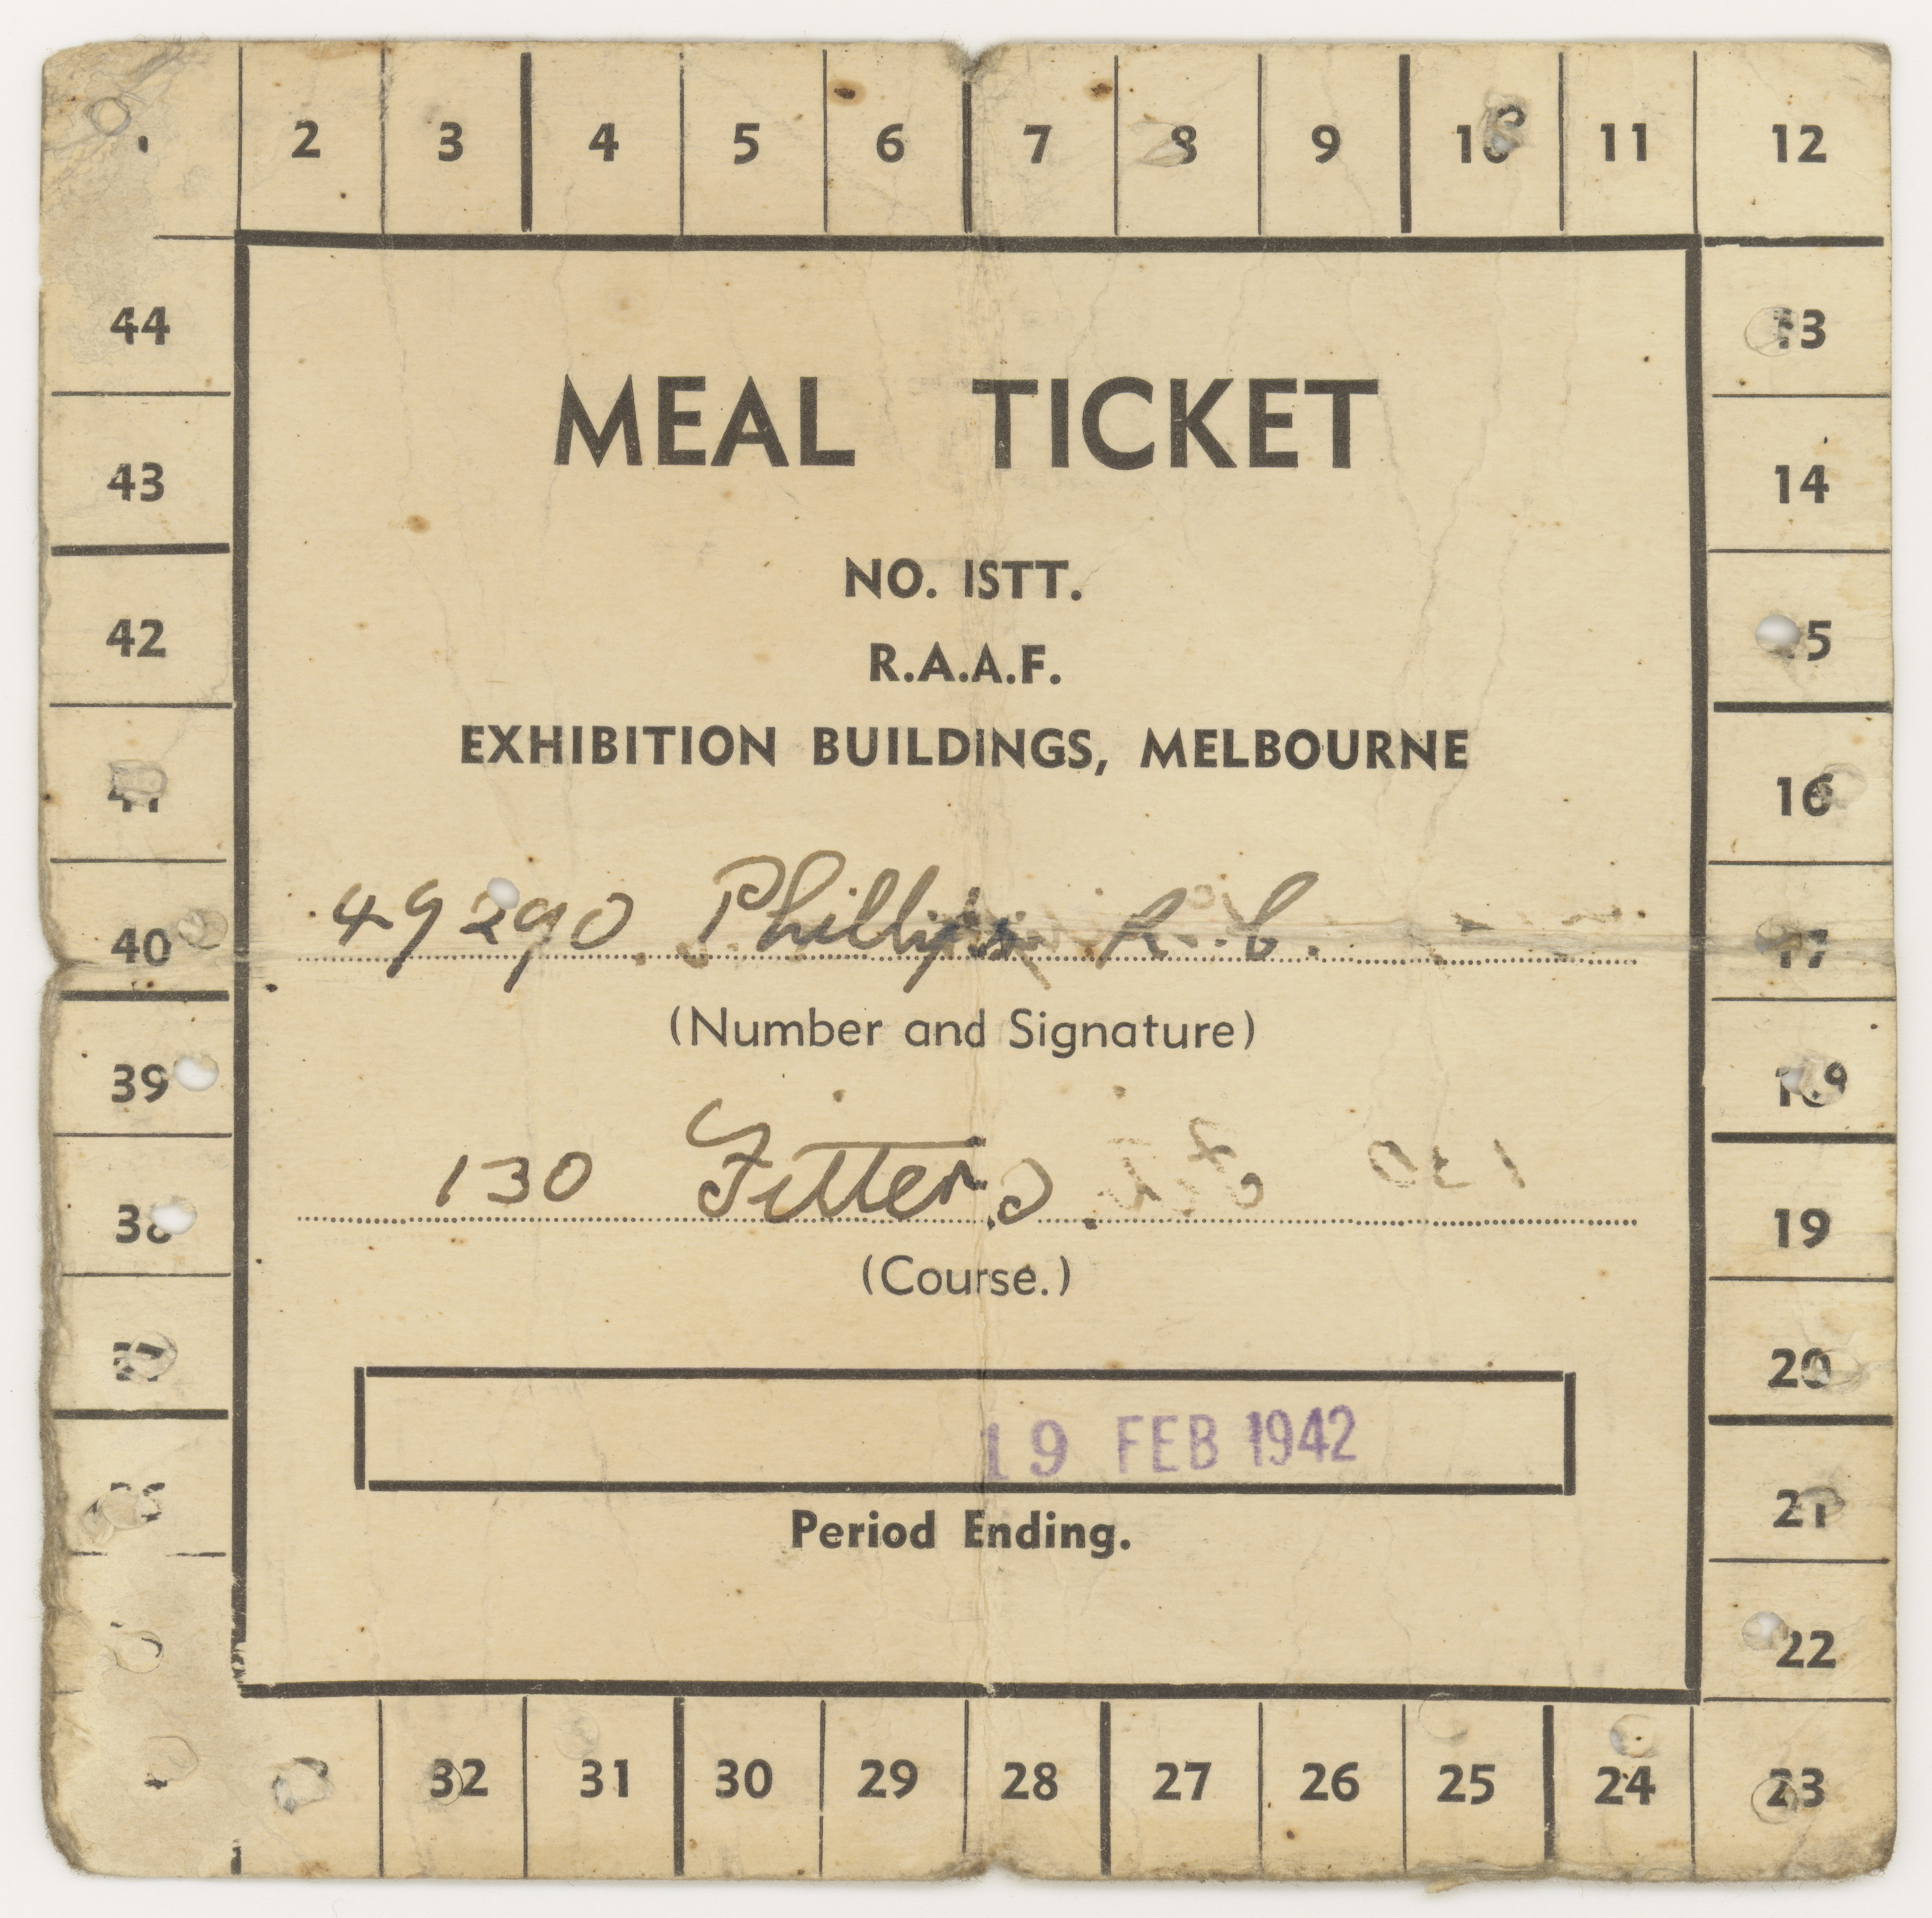 2 3 4 5 6 7 8 9 10 11 12
44 13
43 14
42 15
41 16
40 17
39 18
38 19
37 20
21
22
32 31 30 29 28 27 26 25 24 23
MEAL TICKET
NO. 1STT.
R.A.A.F.
EXHIBITION BUILDINGS, MELBOURNE
49290. Phillips R. C.
(Number and Signature)
130 Fitters
(Course.)
19 FEB 1942
Period Ending.